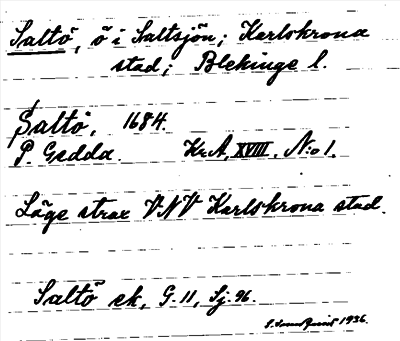 Saltö, ö i Saltsjön; Karlskrona
stad; Blekinge l.
Saltö, 1684.
P. Gedda. Kr.A. XVIII. N:o 1.
Läge strax VNV Karlskrona stad.
Saltö ek, G. 11, Sj. 96.
1936.